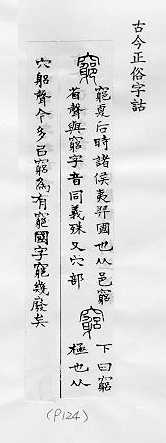 古今正俗字詁
窮夏后時諸侯夷羿國也从邑窮
省聲與窮字音同義殊又穴部
下曰窮
極也从
穴躳聲今多已窮為有窮國字窮幾廢矣
(P124)